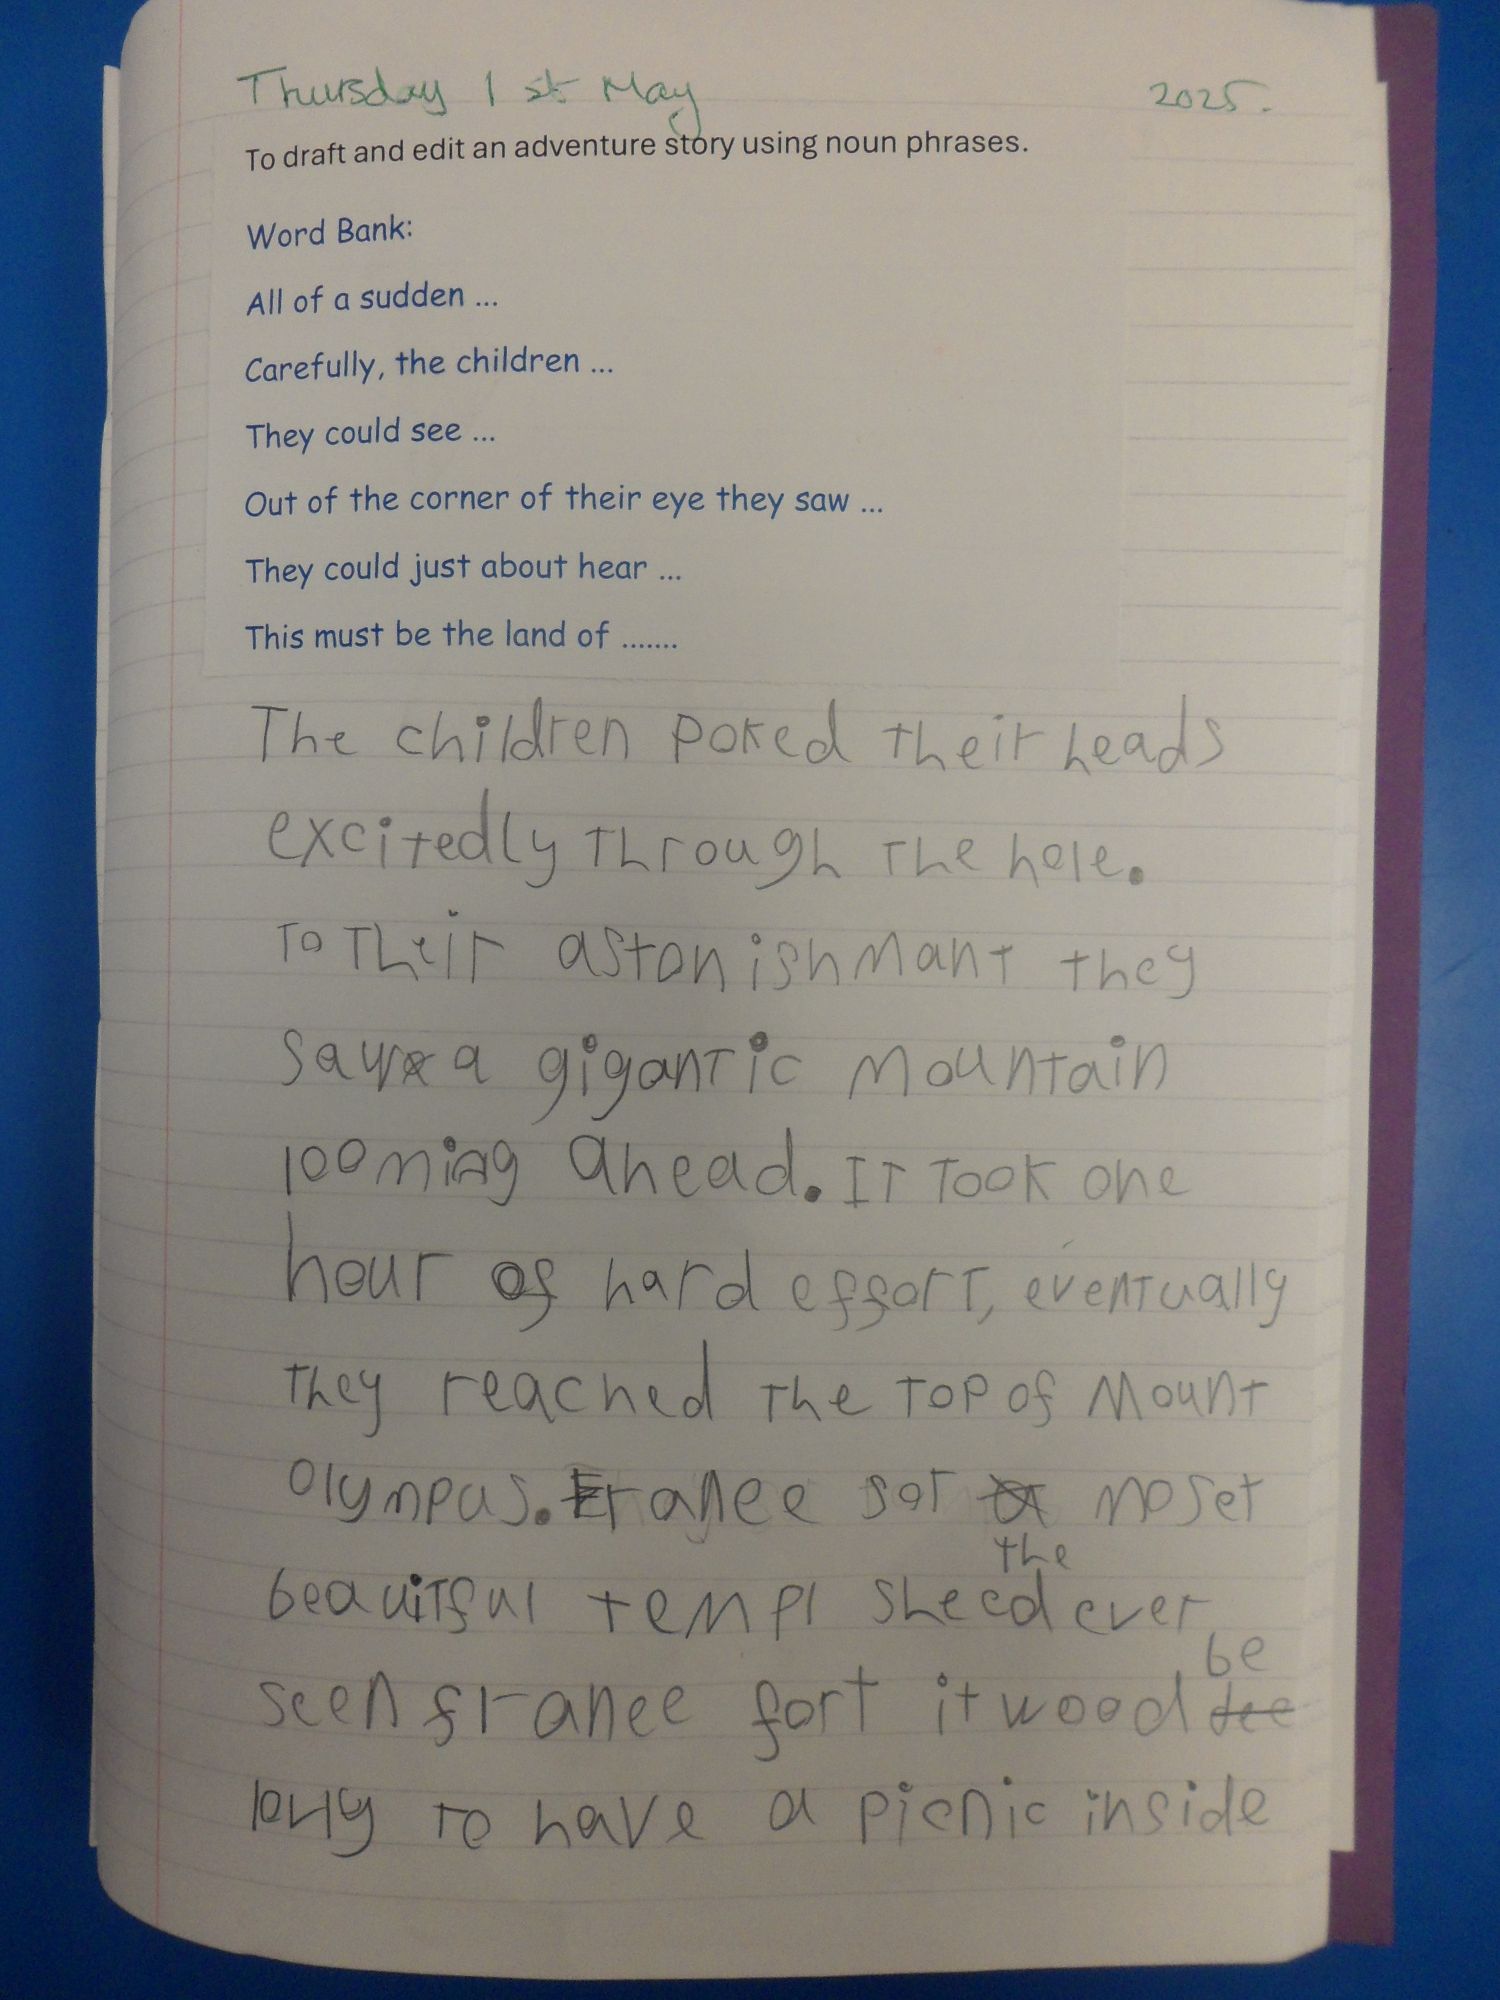 Thursday 1st May 2025.
To draft and edit an adventure story using noun phrases.
Word Bank:
All of a sudden ...
Carefully, the children ...
They could see ...
Out of the corner of their eye they saw ...
They could just about hear ...
This must be the land of .......
The children poked their heads
excitedly through the hole.
To Their astonishmant they
saw a gigantic mountain
looming ahead. It Took one
hour of hard effort, eventually
they reached the Top of Mount
Olympus. Franee sor moset
beauitful templ sheed the ever
seen franee fort it wood be
louly to have a picnic inside